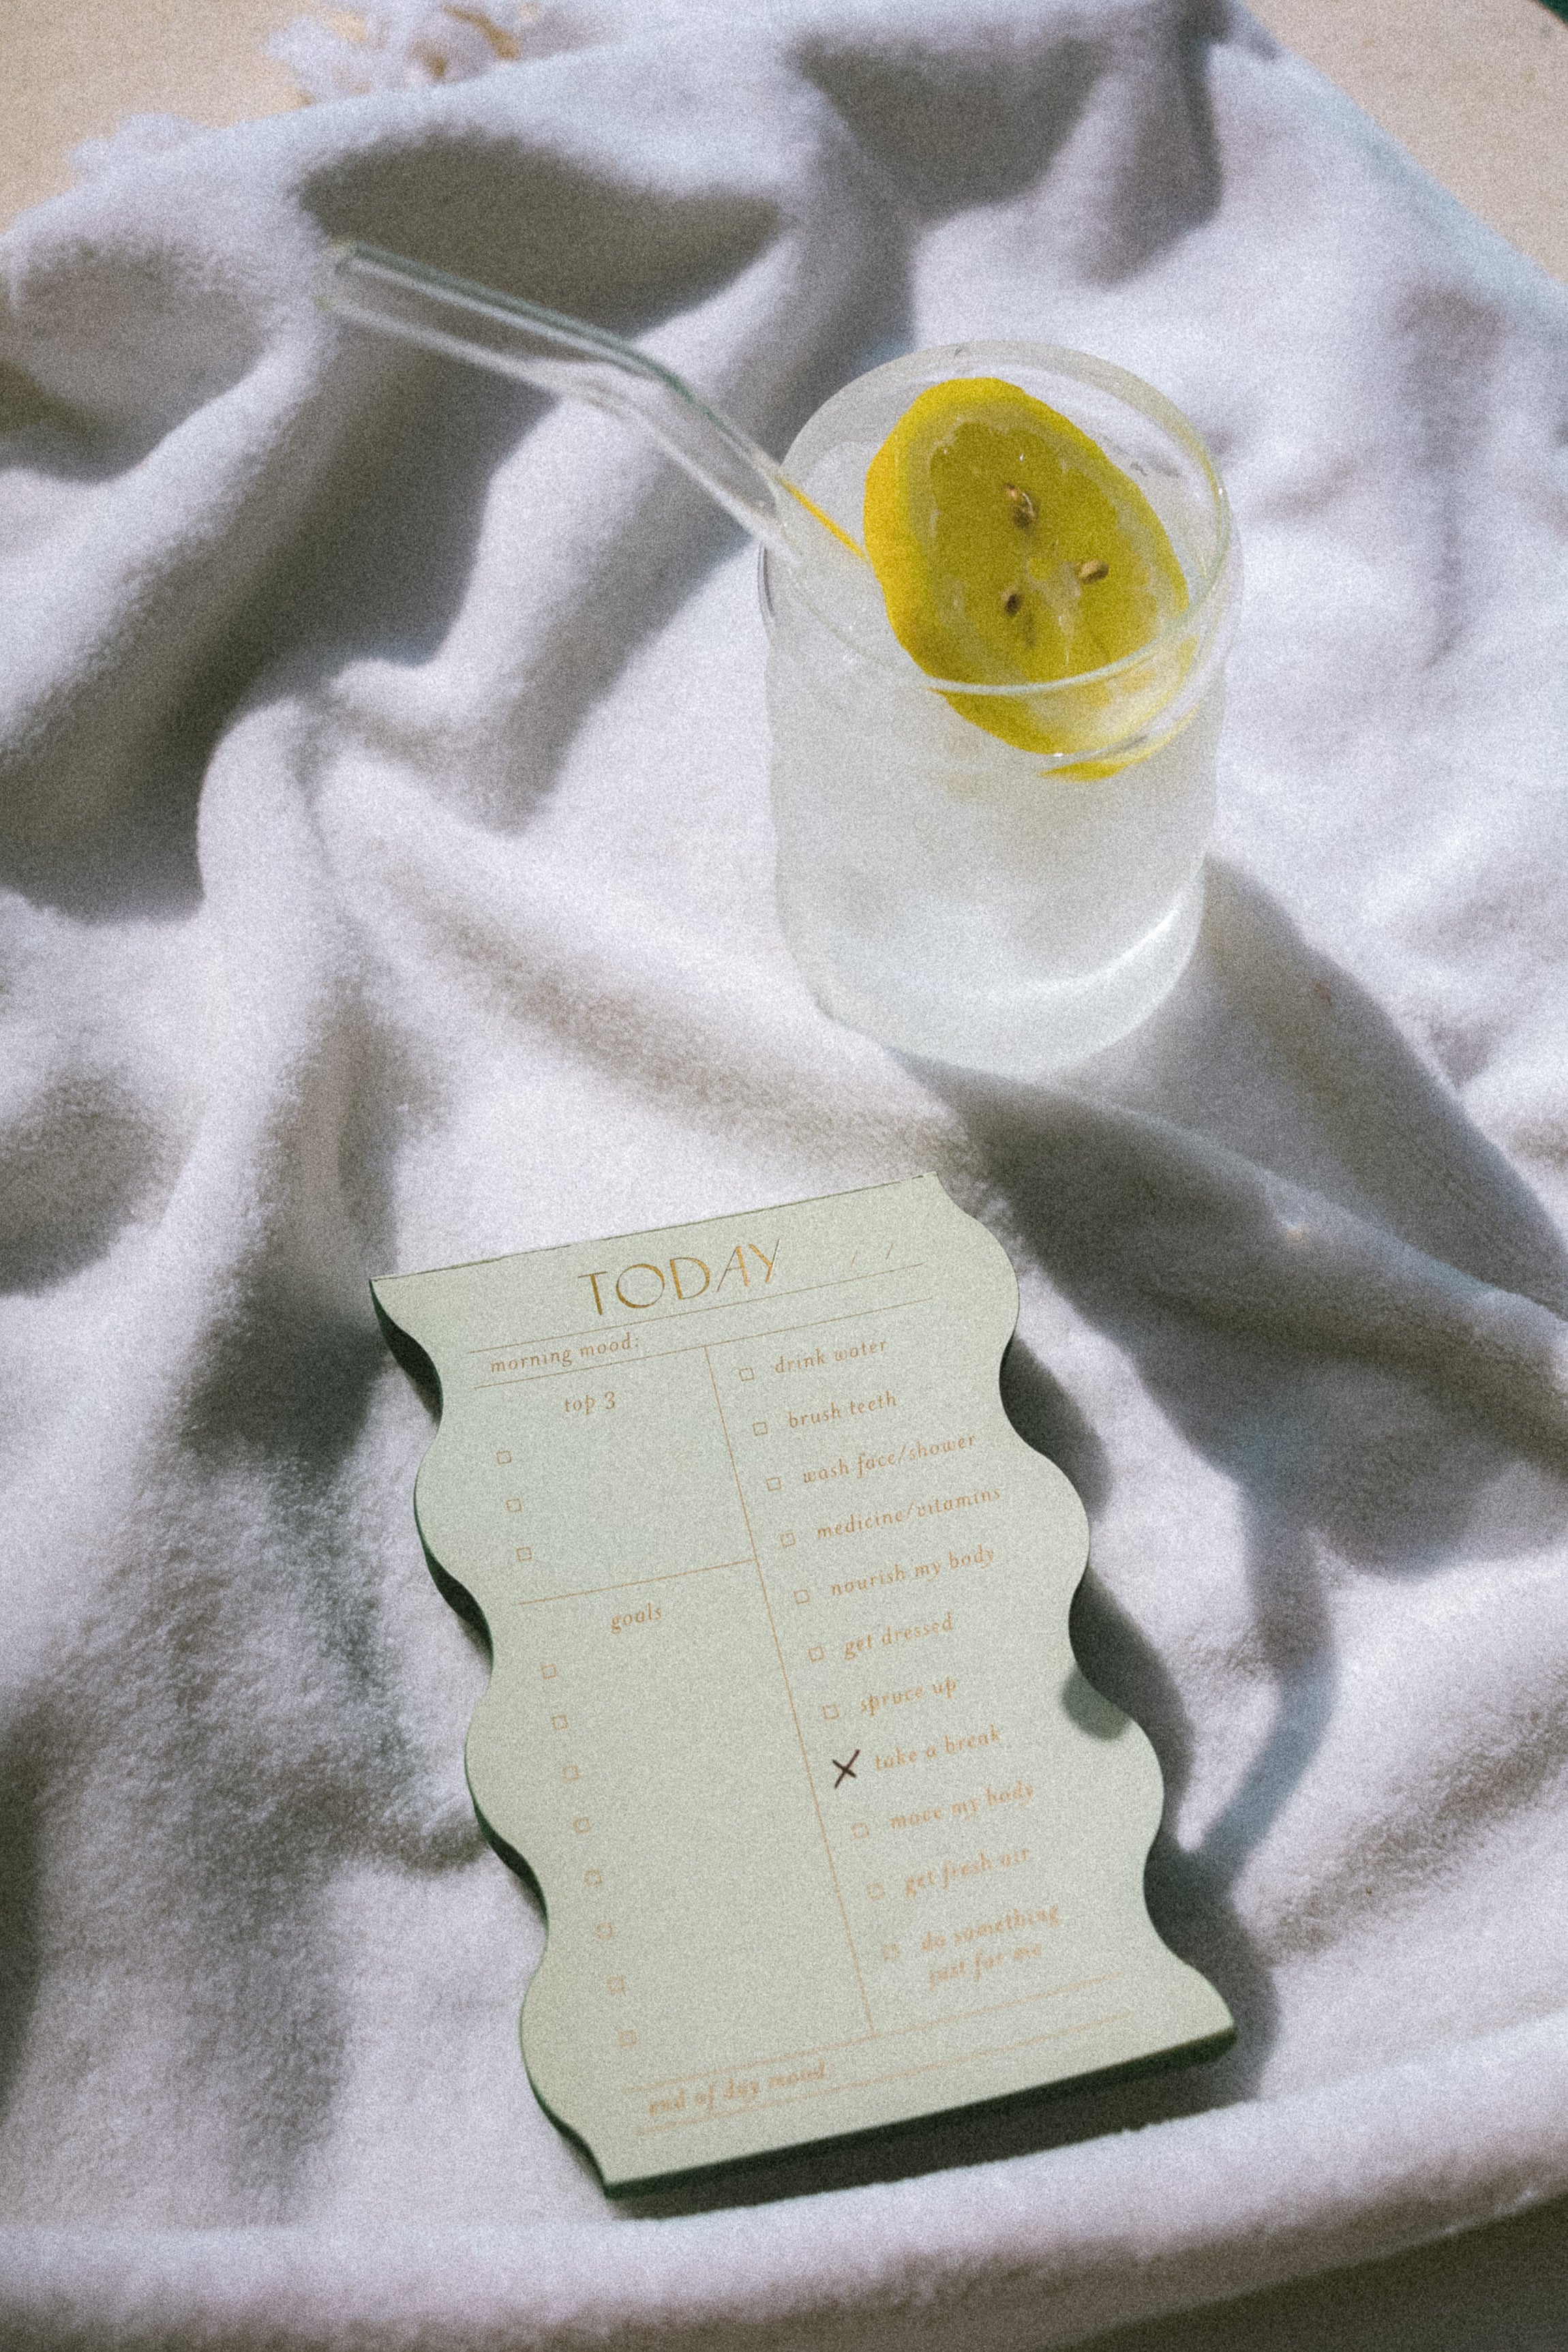 TODAY / /
morning mood:
top 3
goals
drink water
brush teeth
wash face/shower
medicine/vitamins
nourish my body
get dressed
spruce up
X take a break
move my body
get fresh air
do something
just for me
end of day mood